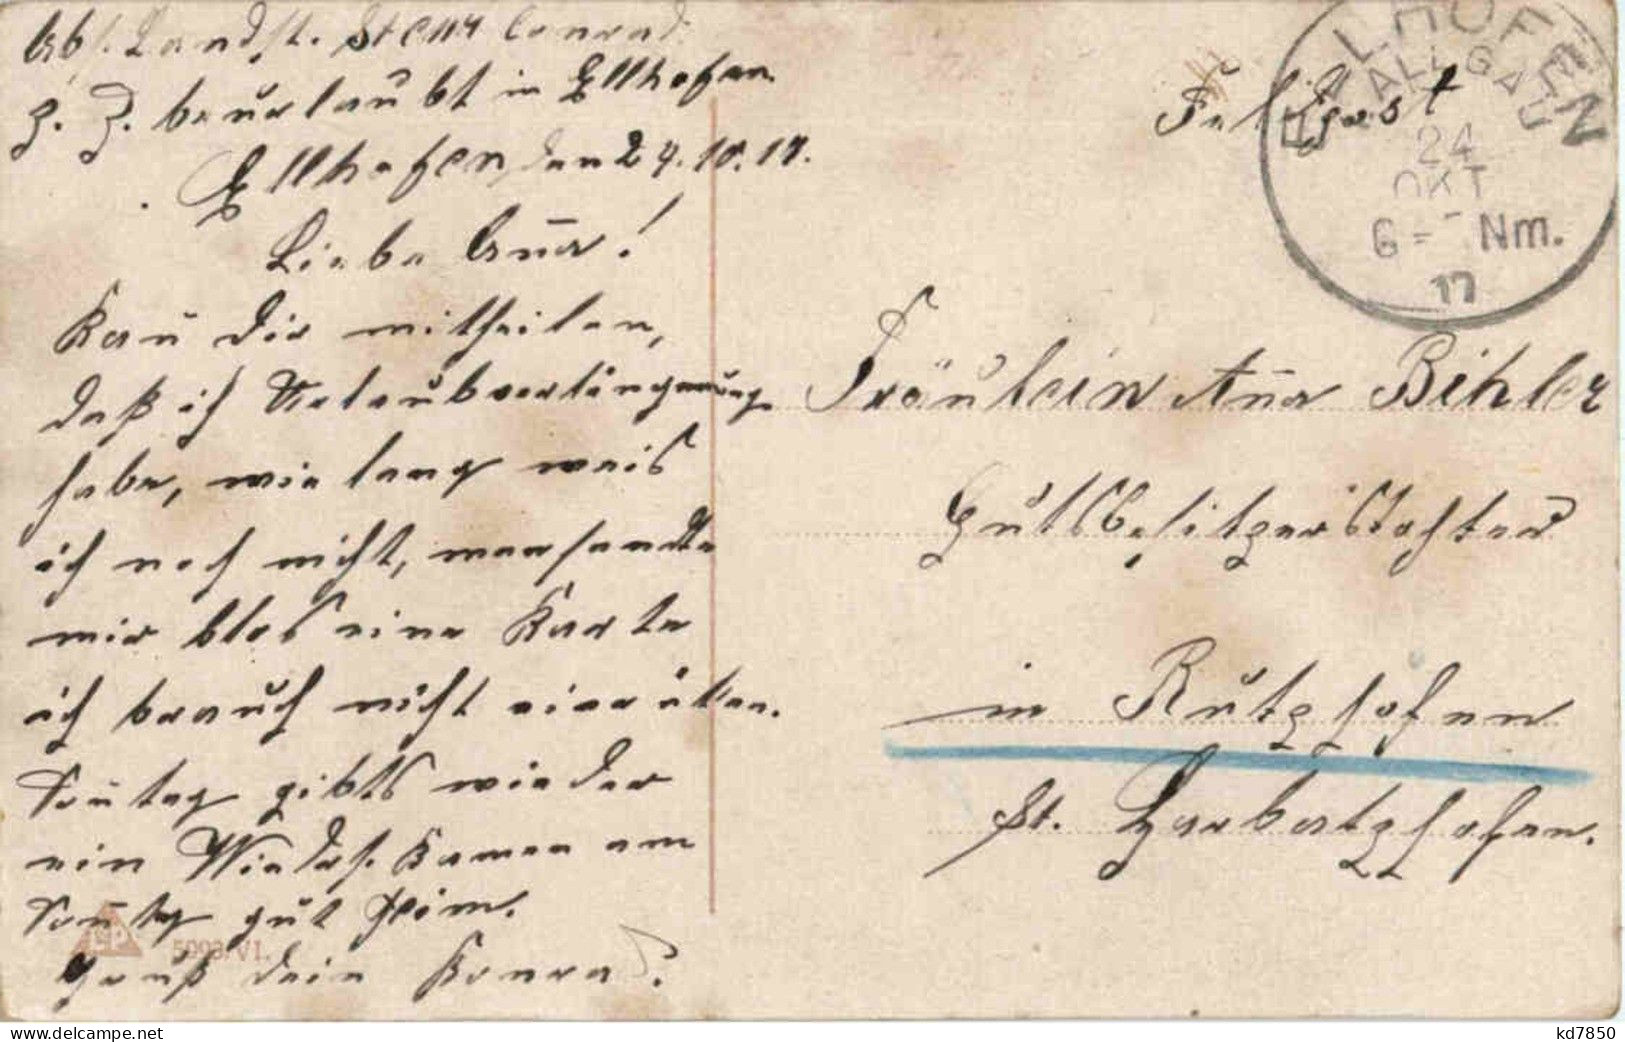 Abs. Landst. Stenz Conrad
z. Z. beurlaubt in Ellhofen
Ellhofen, den 24.10.17.
Liebe Aña!
Kañ Dir mittheilen,
daß ich Urlaubverlängerung
habe, wie lang weis
ich noch nicht, man sandte
mir blos eine Karte
ich brauch nicht einrüken.
Soñtag gibts wieder
ein Wiedrs. Kamen am
Soñtag gut Heim.
Gruß dein Konrad.
5093/VI.
Feldpost
ELLHOFEN
ALLGÄU
24
OKT
6-7 Nm.
17
Fräulein Aña Bihler
Gutsbesitzerstochter
in Rutzhofen
St. Harbatzhofen.
kd7850